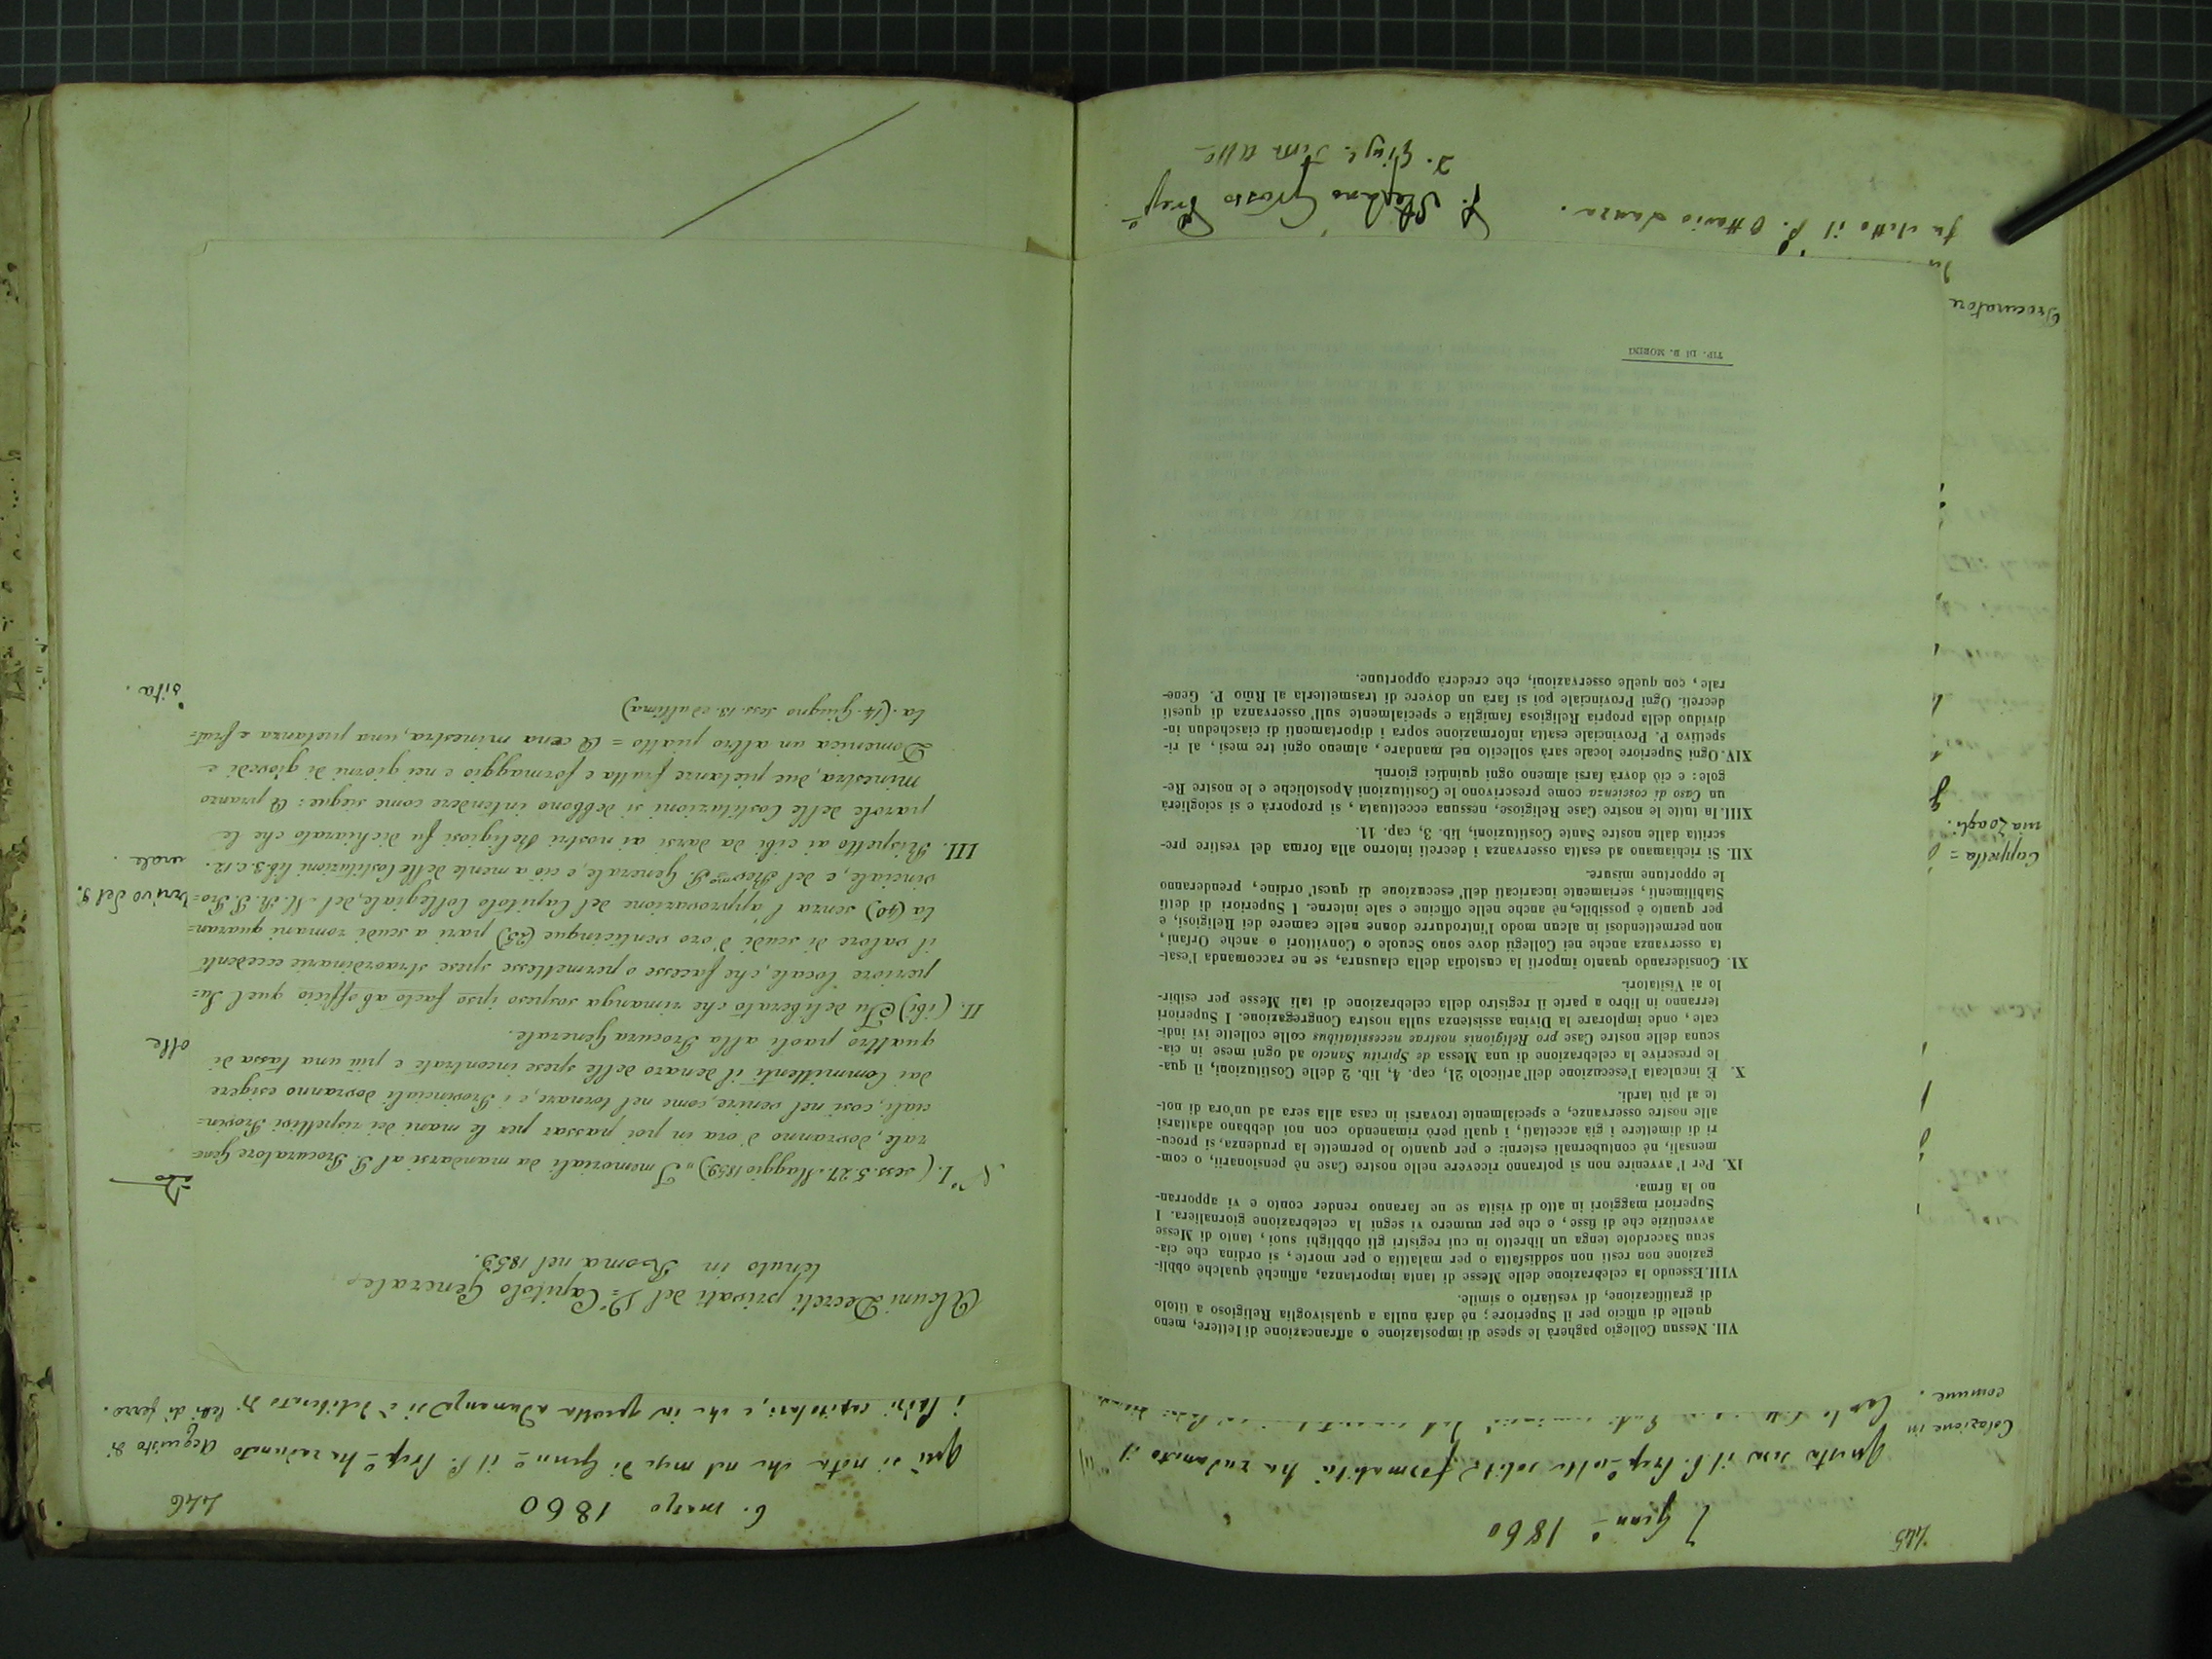 445
7 Genn.º 1860
Questa sera il P. Prep.º colle solite formalità ha radunato il
Colazione in
comune.
VII. Nessun Collegio pagherà le spese di impostazione o affrancazione di lettere, meno
quelle di ufficio per il Superiore; nè darà nulla a qualsivoglia Religioso a titolo
di gratificazione, di vestiario o simile.
VIII. Essendo la celebrazione delle Messe di tanta importanza, affinchè qualche obbli-
gazione non resti non soddisfatta o per malattia o per morte, si ordina che cia-
scun Sacerdote tenga un libretto in cui registri gli obblighi suoi, tanto di Messe
avventizie che di fisse, e che per numero vi segni la celebrazione giornaliera. I
Superiori maggiori in atto di visita se ne faranno render conto e vi apporran-
no la firma.
IX. Per l'avvenire non si potranno ricevere nelle nostre Case nè pensionarii, o com-
mensali, nè contubernali esterni: e per quanto lo permette la prudenza, si procu-
ri di dimettere i già accettati, i quali però rimanendo con noi debbano adattarsi
alle nostre osservanze, e specialmente trovarsi in casa alla sera ad un'ora di not-
te al più tardi.
X. È inculcata l'esecuzione dell'articolo 21, cap. 4, lib. 2 delle Costituzioni, il qua-
le prescrive la celebrazione di una Messa de Spiritu Sancto ad ogni mese in cia-
scuna delle nostre Case pro Religionis nostrae necessitatibus colle collette ivi indi-
cate, onde implorare la Divina assistenza sulla nostra Congregazione. I Superiori
terranno in libro a parte il registro della celebrazione di tali Messe per esibir-
lo ai Visitatori.
XI. Considerando quanto importi la custodia della clausura, se ne raccomanda l'esat-
ta osservanza anche nei Collegii dove sono Scuole o Convittori o anche Orfani,
non permettendosi in alcun modo l'introdurre donne nelle camere dei Religiosi, e
per quanto è possibile, nè anche nelle officine e sale interne. I Superiori di detti
Stabilimenti, seriamente incaricati dell'esecuzione di quest'ordine, prenderanno
le opportune misure.
XII. Si richiamano ad esatta osservanza i decreti intorno alla forma del vestire pre-
scritta dalle nostre Sante Costituzioni, lib. 3, cap. 11.
Cappella =
nia Zoagli.
XIII. In tutte le nostre Case Religiose, nessuna eccettuata, si proporrà e si scioglierà
un Caso di coscienza come prescrivono le Costituzioni Apostoliche e le nostre Re-
gole: e ciò dovrà farsi almeno ogni quindici giorni.
XIV. Ogni Superiore locale sarà sollecito nel mandare, almeno ogni tre mesi, al ri-
spettivo P. Provinciale esatta informazione sopra i diportamenti di ciaschedun in-
dividuo della propria Religiosa famiglia e specialmente sull'osservanza di questi
decreti. Ogni Provinciale poi si farà un dovere di trasmetterla al Rmo P. Gene-
rale, con quelle osservazioni, che crederà opportune.
TIP. DI B. MORINI
Procuratore
fu eletto il P. Ottavio Lanza.
P. Stefano Grosso Prep.º
6. marzo 1860
446
Qui si nota che nel mese di Genn.º il P. Prep.º ha radunato
i Padri capitolari, e che in quella adunanza si è deliberato di
Acquisto di
letti di ferro.
Alcuni Decreti privati del V.e Capitolo Generale,
tenuto in Roma nel 1859.
N.º I. (sess. 5. 27. Maggio 1859.) I memoriali da mandarsi al P. Procuratore Gene-
rale, dovranno d'ora in poi passar per le mani dei rispettivi Provin-
ciali, così nel venire, come nel tornare, e, i Provinciali dovranno esigere
dai Committenti il denaro delle spese incontrate e più una tassa di
quattro paoli alla Procura Generale.
II. (ibi) Fu deliberato che rimanga sospeso ipso facto ab officio quel Su-
periore locale, che facesse o permettesse spese straordinarie eccedenti
il valore di scudi d'oro venticinque (25) pari a scudi romani quaran-
ta (40) senza l'approvazione del Capitolo Collegiale, del M. R. P. Pro-
vinciale, e, del Rev.mo P. Generale, e, ciò a mente delle Costituzioni lib. 3. c. 12.
Arrivo del P.
III. Rispetto ai cibi da darsi ai nostri Religiosi fu dichiarato che le
parole delle Costituzioni si debbono intendere come siegue: A pranzo
minestra, due pietanze frutta e formaggio e nei giorni di giovedì e
Domenica un altro piatto = A cena minestra, una pietanza e frut-
ta. (14. Giugno Sess. 13. ed ultima)
sita.